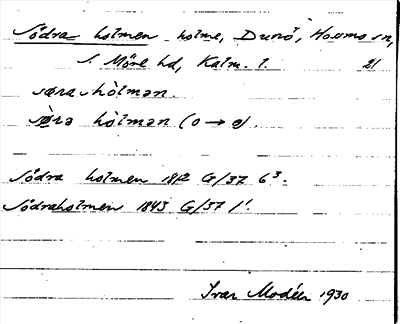 Södra holmen holme, Dunö, Hossmo sn,
S. Möre hd, Kalm. l. 21
særa hòlmən.
sø̀rə hòlmən (o → ə).
Södra holmen 1812 G/37 6³.
Södraholmen 1843 G/37 1¹.
Ivar Modéer 1930